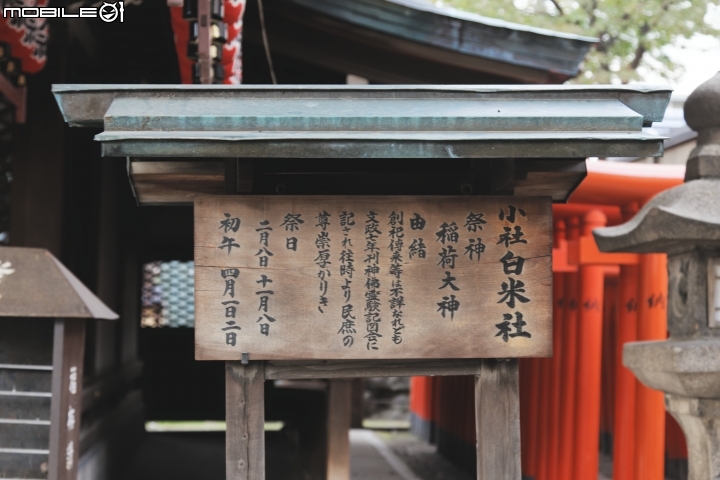 MOBILE01
小社白米社
祭神
稲荷大神
由緒
創祀伝来等は不詳なれども
文政七年刊神佛霊験記図会に
記され往時より民庶の
尊崇厚かりき
祭日
二月八日 十一月八日
初午 四月一日二日